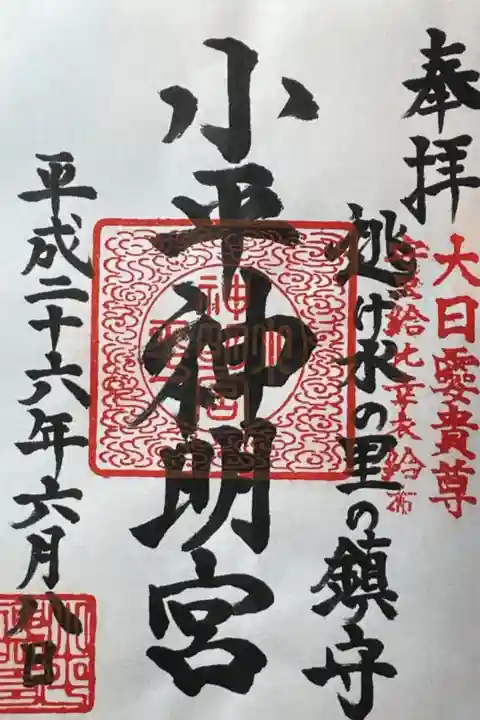 奉拝
大日孁貴尊
逃け水の里の鎮守
小平神明宮
平成二十六年六月八日